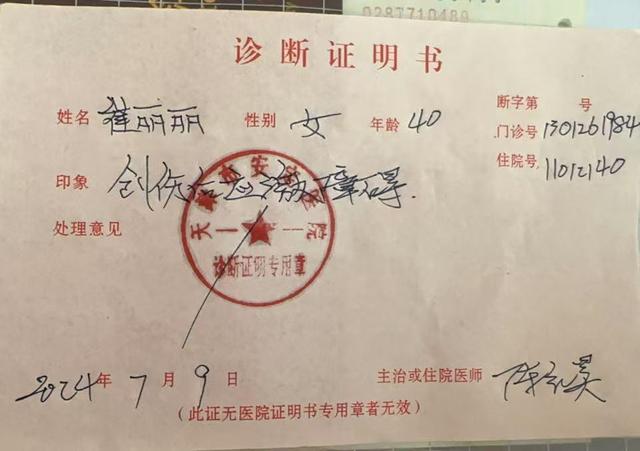 0287710489
诊断证明书
姓名 崔丽丽 性别 女 年龄 40
断字第 号
门诊号 1301261984
住院号 11012140
印象 创伤后应激障碍.
处理意见
天津市安定医院
诊断证明专用章
2024年 7月 9日 主治或住院医师
(此证无医院证明书专用章者无效)